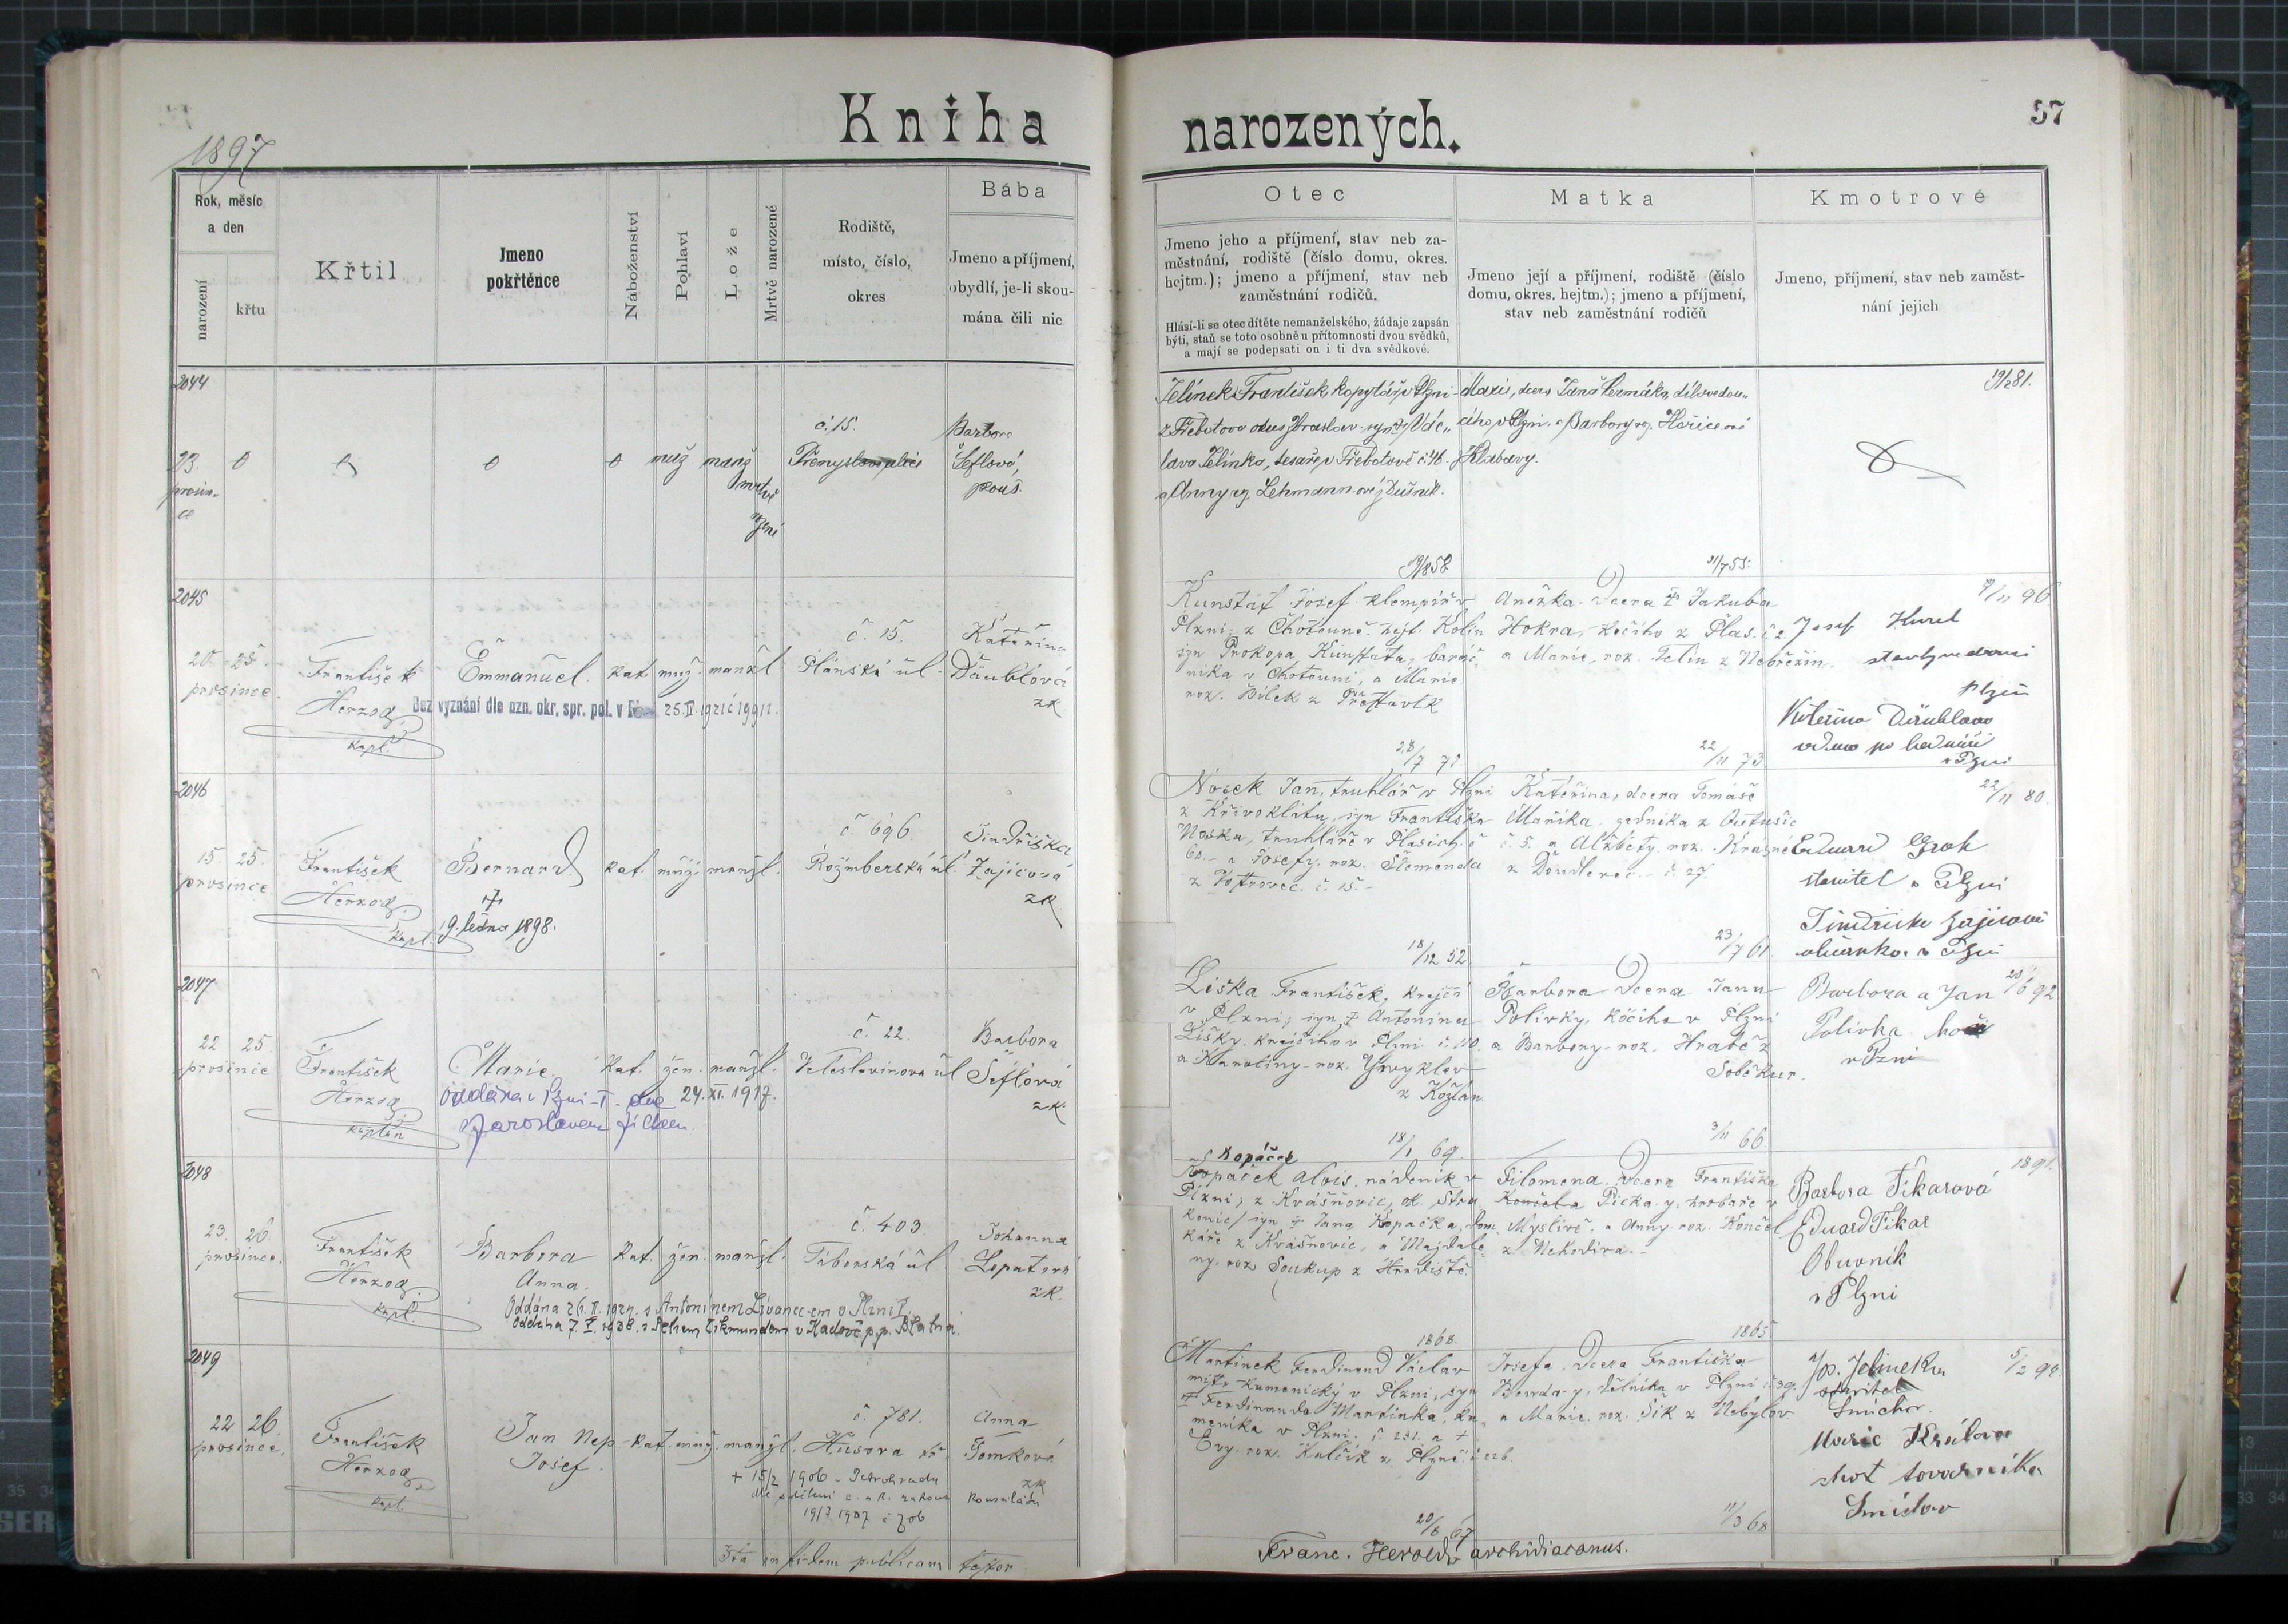 Kniha
narozených.
57
1897
Rok, měsíc
a den
narození
křtu
Křtil
Jmeno
pokřtěnce
Náboženství
Pohlaví
Lože
Mrtvě narozené
Rodiště,
místo, číslo,
okres
Bába
Jmeno a příjmení,
obydlí, je-li skou-
mána čili nic
Otec
Jmeno jeho a příjmení, stav neb za-
městnání, rodiště (číslo domu, okres.
hejtm.); jmeno a příjmení, stav neb
zaměstnání rodičů.
Hlásí-li se otec dítěte nemanželského, žádaje zapsán
býti, staň se toto osobně u přítomnosti dvou svědků,
a mají se podepsati on i ti dva svědkové.
Matka
Jmeno její a příjmení, rodiště (číslo
domu, okres. hejtm.); jmeno a příjmení,
stav neb zaměstnání rodičů
Kmotrové
Jmeno, příjmení, stav neb zaměst-
nání jejich
2044
23.
prosin-
ce
muž manž
mrtvě
č. 15.
Barbora
Šeflová,
Jelínek František, kopytář v Plzni
z Třebotova okres Zbraslav syn Vác-
lava Jelínka, tesaře v Třebotově č. 46.
a Anny roz. Lehmann-ové z Dušník.
19/8 58
Marie, dcera Jana Čermáka, dílovedou-
cího v Plzni a Barbory roz. Hořice-ové
z Klabavy.
31/7 55.
19/2 81.
2045
20. 25.
prosince.
František
Herzog
kapl.
Emmanuel.
kat. muž. manžl.
č. 15.
Plánská ul.
Kateřina
Däublová
zk
Bez vyznání dle ozn. okr. spr. pol. v 25. II. 1921 č. 1991
Kunstát Josef klempíř v
Plzni; z Chotouně hejt. Kolín
syn Prokopa Kunstáta, baráč-
níka v Chotouni, a Marie
roz. Bílek z
28/7 71
Anežka dcera † Jakuba
Hokra, kočího z Plas. č 2.
a Marie, roz. Telín z Nebřežin.
22/11 73
9/11 96
Josef Kurel
Plzeň
Kateřina Däublova
vdova po bednáři
v Plzni
2046
15. 25.
prosince
František
Herzog
kapl.
Bernard.
†
19. ledna 1898.
kat. muž. manžl.
č. 696
Rožmberská ul.
Jindřiška
Zajícová
zk
Nosek Jan, truhlář v Plzni
z Křivoklátu, syn Františka
Noska, truhláře v Plasích č
60.- a Josefy, roz. Slemenda
z Vottrovec. č. 15.-
18/12 52
Kateřina, dcera Tomáše
Maříka z Outušic
č. 5. a Alžběty roz. Krásné
z Doudlevec. - č. 27.
23/7 61.
22/11 80.
Eduard Groh
stavitel v Plzni
Jindřiška Zajícová
občanka v Plzni
2047
22 25.
prosince
František
Herzog
kaplan
Marie.
kat. žen. manžl.
č. 22.
Veleslavinova ul
Barbora
Šeflová
zk.
Oddána v Plzni I. dne 24. XI. 1917.
s Jaroslavem
Liška František, krejčí
v Plzni; syn † Antonína
Lišky, krejčího v Plzni č. 110.
a Karoliny roz. Zvyklov
z Kožlan
18/1 69.
Barbora dcera Jana
Polívky, kočího v Plzni
a Barbory roz. Hrabě z
Soběkur.
3/11 66
Barbora a Jan 20/6 92.
Polívka
v Plzni
2048
23. 26
prosince.
František
Herzog.
kapl.
Barbora
Anna.
kat. žen. manžl.
č. 403.
Táborská ul.
Johanna
Lopatová
zk.
Oddána 26. II. 1924. s Antonínem Livanec-em v Plzni I.
Oddána 7. I. 1938. s v Kadově p.p. Blatna.
Kopáček
Kopáček Alois, nádeník v
Plzni; z Kvášňovic, ok. Stra
konic, syn † Jana Kopáčka, dom
káře z Kvášňovic, a Majdalé-
ny roz. Soukup z Hradiště.
1868.
Filomena. Dcera Františka
Končela Picka-y, hrobaře v
Myslivě, a Anny roz. Končel
z Nekvdiva.-
1865
1891.
Barbora Fikarová
Eduard Fikar
Obuvník
v Plzni
2049
22 26
prosince.
František
Herzog.
kapl
Jan Nep.
Josef.
kat. muž. manžl.
č. 781.
Husova tř.
Anna
Tomková
zk
† 15/2 1906 v Petrohradu
dle sdělení c. a k. rakous. konsulátu
19/7 1907 č 706
Martínek Ferdinand Václav
mistr kamenický v Plzni, syn
† Ferdinanda Martínka, ka-
meníka v Plzni. č. 231. a †
Evy roz. Kulčík z Plzně č. 226.
20/8 67
Josefa. Dcera Františka
Benda-y, dělníka v Plzni č 39.
a Marie roz. Šik z Nebylov
11/3 68
5/2 98.
Jos. Jelínek
stavitel
Smíchov.
Marie Králova
chot továrníka
Smíchov
Ita in fidem publicam testor
Franc. Herold, archidiaconus.